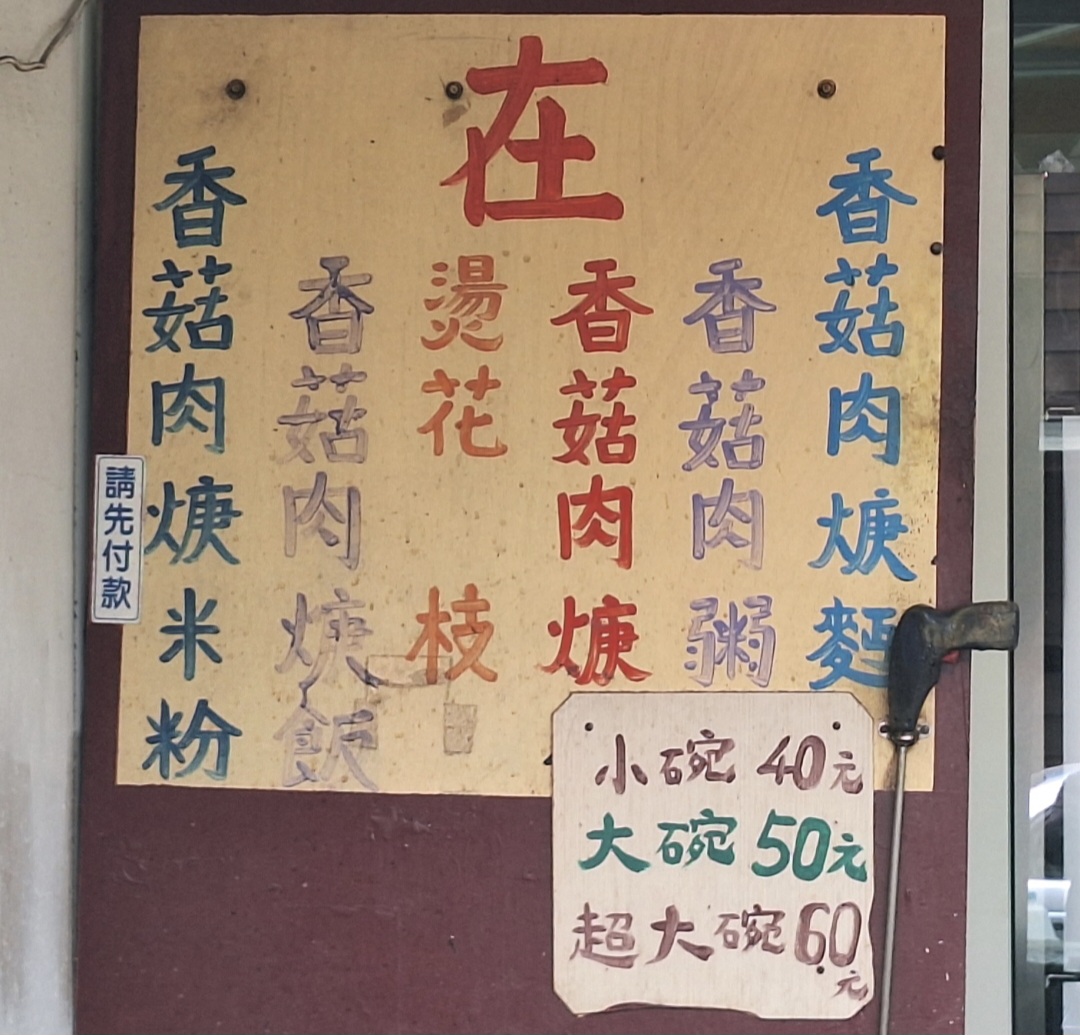 在
香菇肉焿麵
香菇肉粥
香菇肉焿
燙花枝
香菇肉焿飯
香菇肉焿米粉
請先付款
小碗40元
大碗50元
超大碗60元